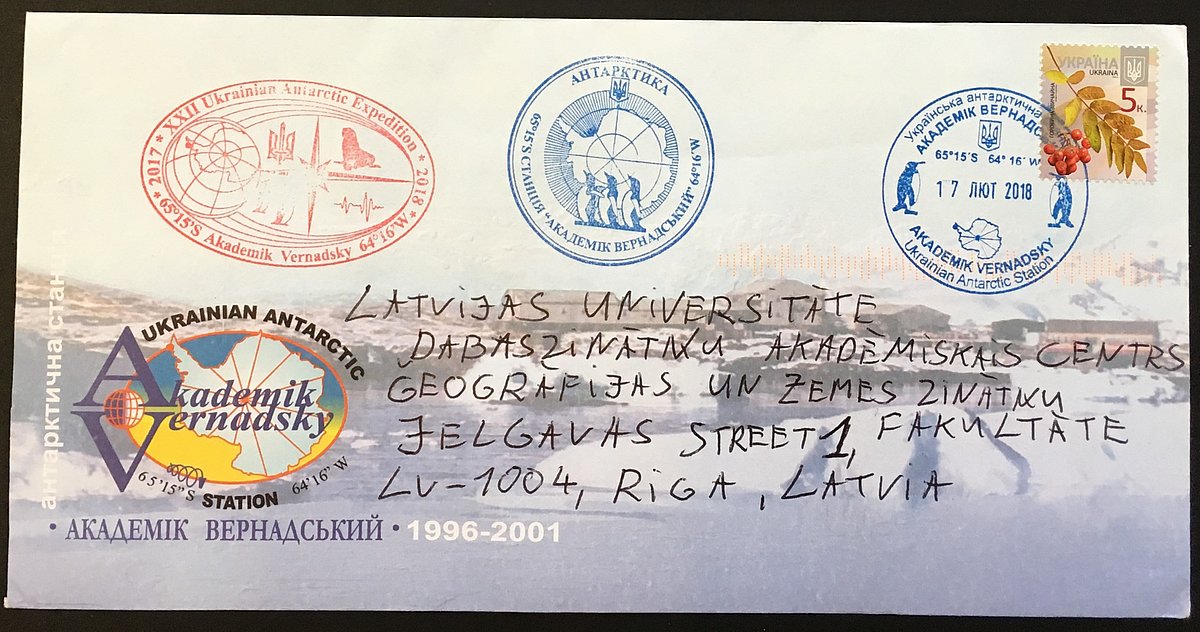 2017 * XXII Ukrainian Antarctic Expedition * 2018 *
65°15'S Akademik Vernadsky 64°16'W
АНТАРКТИКА
65°15'S СТАНЦІЯ "АКАДЕМІК ВЕРНАДСЬКИЙ" 64°16'W
УКРАЇНА
UKRAINA
5к.
Українська антарктична
АКАДЕМІК ВЕРНАДС
65°15'S 64°16' W
17 ЛЮТ 2018
AKADEMIK VERNADSKY
Ukrainian Antarctic Station
LATVIJAS UNIVERSITĀTE
DABASZINĀTŅU AKADĒMISKAIS CENTRS
ĢEOGRĀFIJAS UN ZEMES ZINĀTŅU
JELGAVAS STREET 1, FAKULTĀTE
LV-1004, RIGA, LATVIA
антарктична стан
UKRAINIAN ANTARCTIC
Akademik
Vernadsky
65'15"S STATION 64'16"W
• АКАДЕМІК ВЕРНАДСЬКИЙ • 1996-2001